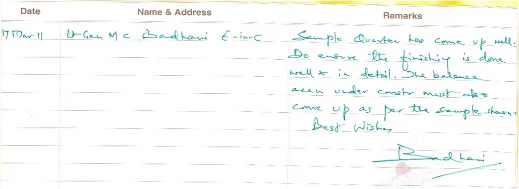 Date Name & Address Remarks
17 Mar 11 Lt Gen M C Badhani E-in-C Sample Quarter has come up well.
Do ensure the finishing is done
well & in detail. The balance
accn under constr must also
come up as per the sample shown.
Best Wishes
Badhani